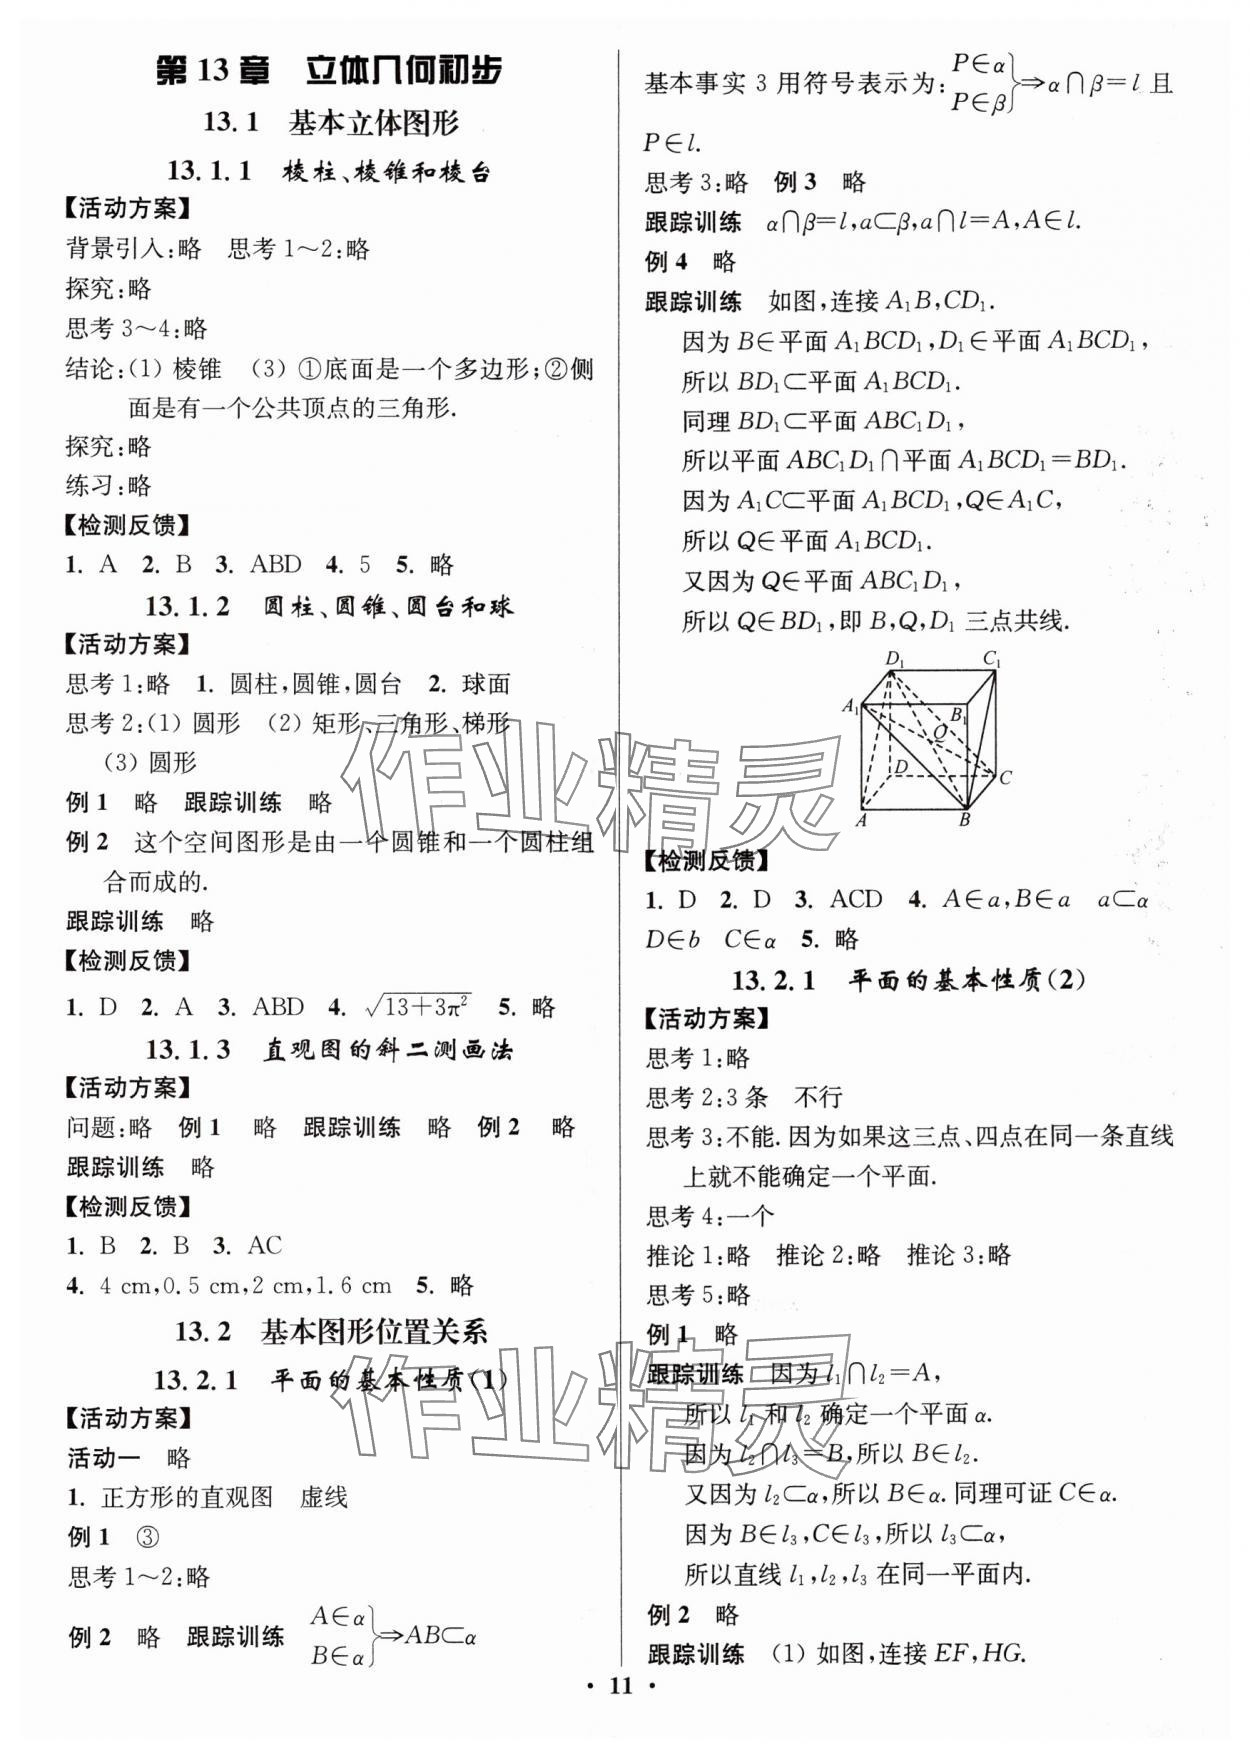 第13章 立体几何初步
13.1 基本立体图形
13.1.1 棱柱、棱锥和棱台
【活动方案】
背景引入:略 思考1～2:略
探究:略
思考3～4:略
结论:(1) 棱锥 (3) ①底面是一个多边形;②侧
面是有一个公共顶点的三角形.
探究:略
练习:略
【检测反馈】
1. A 2. B 3. ABD 4. 5 5. 略
13.1.2 圆柱、圆锥、圆台和球
【活动方案】
思考1:略 1. 圆柱,圆锥,圆台 2. 球面
思考2:(1) 圆形 (2) 矩形、三角形、梯形
(3) 圆形
例1 略 跟踪训练 略
例2 这个空间图形是由一个圆锥和一个圆柱组
合而成的.
跟踪训练 略
【检测反馈】
1. D 2. A 3. ABD 4. √(13+3π²) 5. 略
13.1.3 直观图的斜二测画法
【活动方案】
问题:略 例1 略 跟踪训练 略 例2 略
跟踪训练 略
【检测反馈】
1. B 2. B 3. AC
4. 4 cm,0.5 cm,2 cm,1.6 cm 5. 略
13.2 基本图形位置关系
13.2.1 平面的基本性质(1)
【活动方案】
活动一 略
1. 正方形的直观图 虚线
例1 ③
思考1～2:略
例2 略 跟踪训练 A∈α B∈α}⇒AB⊂α
基本事实3用符号表示为: P∈α P∈β}⇒α∩β=l 且
P∈l.
思考3:略 例3 略
跟踪训练 α∩β=l,a⊂β,a∩l=A,A∈l.
例4 略
跟踪训练 如图,连接A₁B,CD₁.
因为B∈平面A₁BCD₁,D₁∈平面A₁BCD₁,
所以BD₁⊂平面A₁BCD₁.
同理BD₁⊂平面ABC₁D₁,
所以平面ABC₁D₁∩平面A₁BCD₁=BD₁.
因为A₁C⊂平面A₁BCD₁,Q∈A₁C,
所以Q∈平面A₁BCD₁.
又因为Q∈平面ABC₁D₁,
所以Q∈BD₁,即B,Q,D₁三点共线.
D₁ C₁
A₁ B₁
Q
D C
A B
【检测反馈】
1. D 2. D 3. ACD 4. A∈a,B∈a a⊂α
D∈b C∈α 5. 略
13.2.1 平面的基本性质(2)
【活动方案】
思考1:略
思考2:3条 不行
思考3:不能.因为如果这三点、四点在同一条直线
上就不能确定一个平面.
思考4:一个
推论1:略 推论2:略 推论3:略
思考5:略
例1 略
跟踪训练 因为l₁∩l₂=A,
所以l₁和l₂确定一个平面α.
因为l₂∩l₃=B,所以B∈l₂.
又因为l₂⊂α,所以B∈α.同理可证C∈α.
因为B∈l₃,C∈l₃,所以l₃⊂α,
所以直线l₁,l₂,l₃在同一平面内.
例2 略
跟踪训练 (1) 如图,连接EF,HG.
· 11 ·
作业精灵
作业精灵